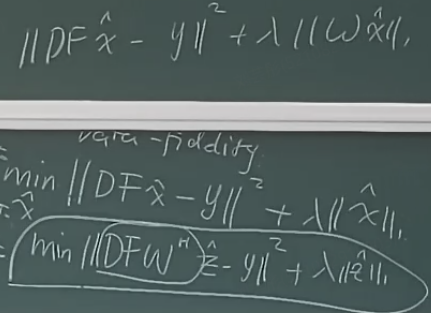 ||DFx̂ - y||² + λ||Wx̂||₁
data-fidelity
min ||DFx̂ - y||² + λ||x̂||₁
x̂
= min ||DFWᴴẑ - y||² + λ||ẑ||₁